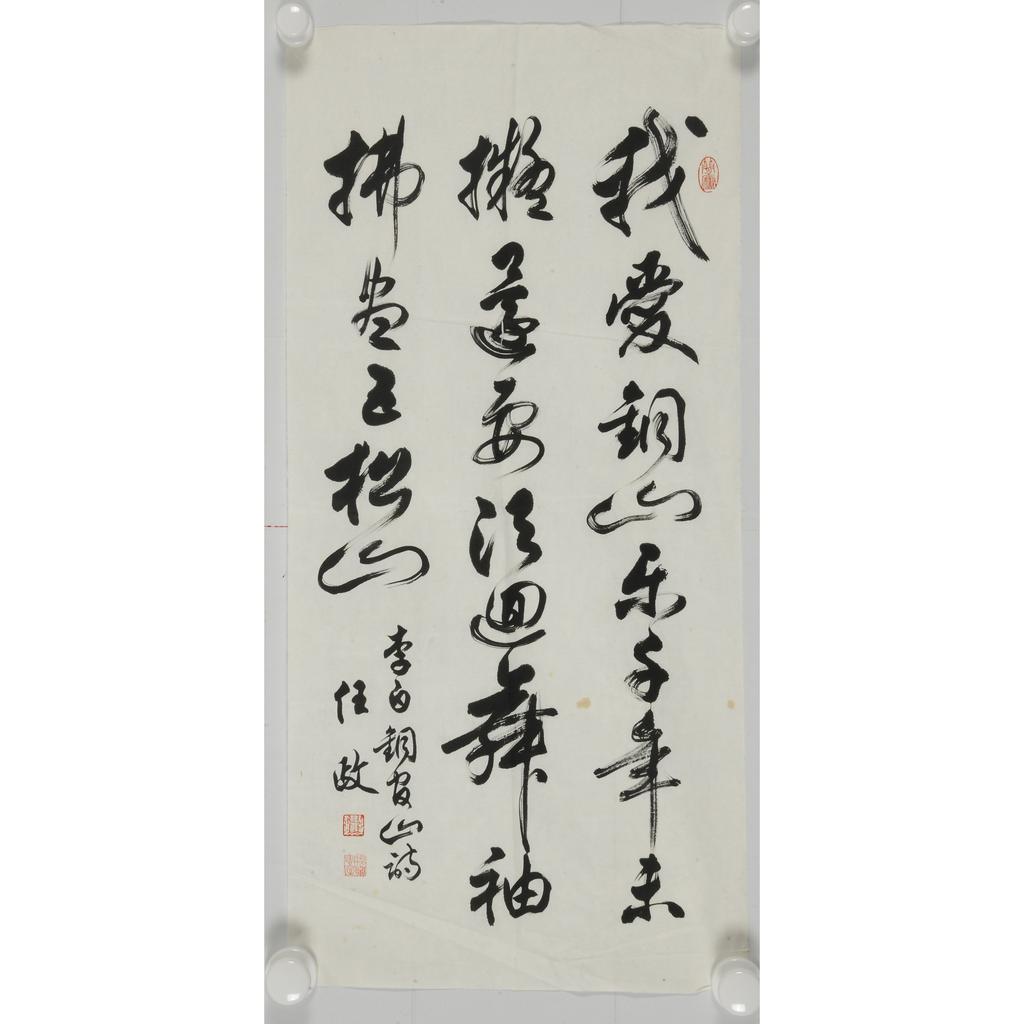 我愛銅山樂千年未
擬還要須迴舞袖
拂盡五松山
李白銅官山詩
任政